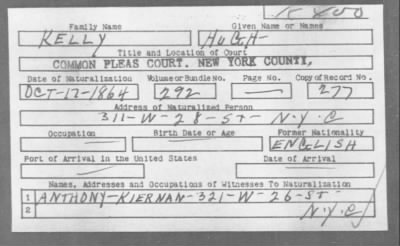 K 400
Family Name Given Name or Names
KELLY HUGH
Title and Location of Court
COMMON PLEAS COURT. NEW YORK COUNTY,
Date of Naturalization Volume or Bundle No. Page No. Copy of Record No.
OCT-17-1864 292 — 277
Address of Naturalized Person
311-W-28-ST-N.Y.C
Occupation Birth Date or Age Former Nationality
ENGLISH
Port of Arrival in the United States Date of Arrival
Names, Addresses and Occupations of Witnesses To Naturalization
1 ANTHONY-KIERNAN-321-W-26-ST
2 N.Y.C